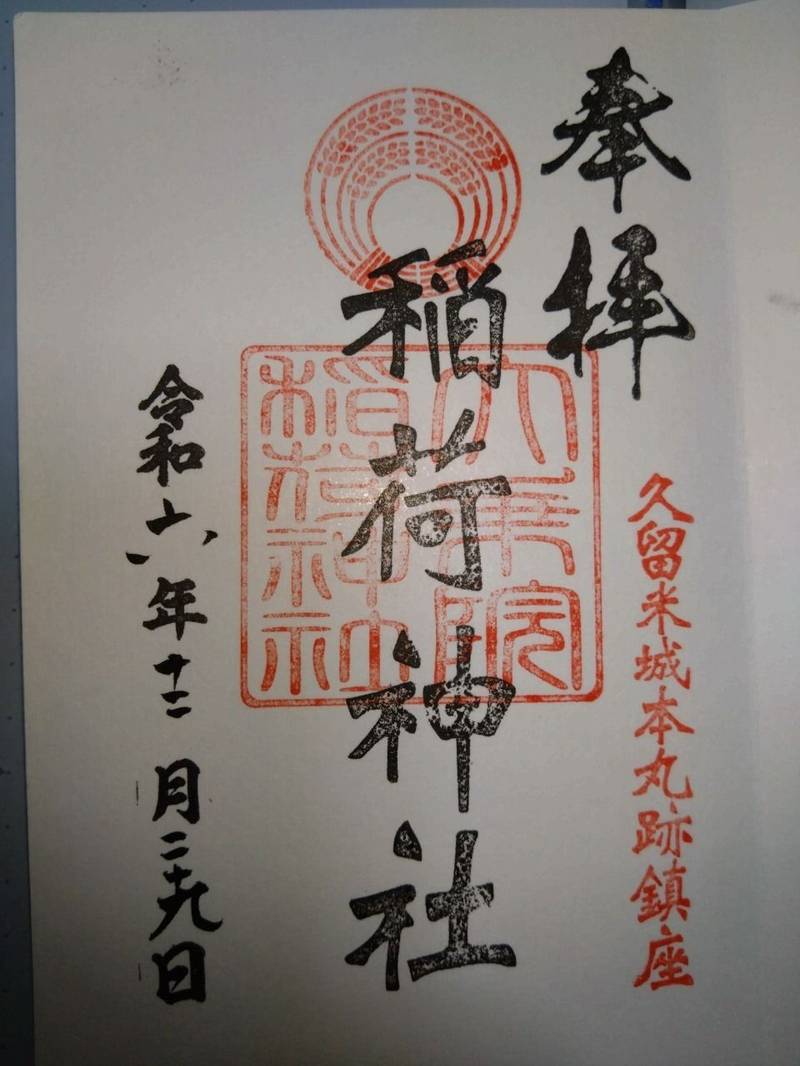 奉拝
久留米城本丸跡鎮座
稲荷神社
大乗院
稲荷神社
令和六年十二月二十九日